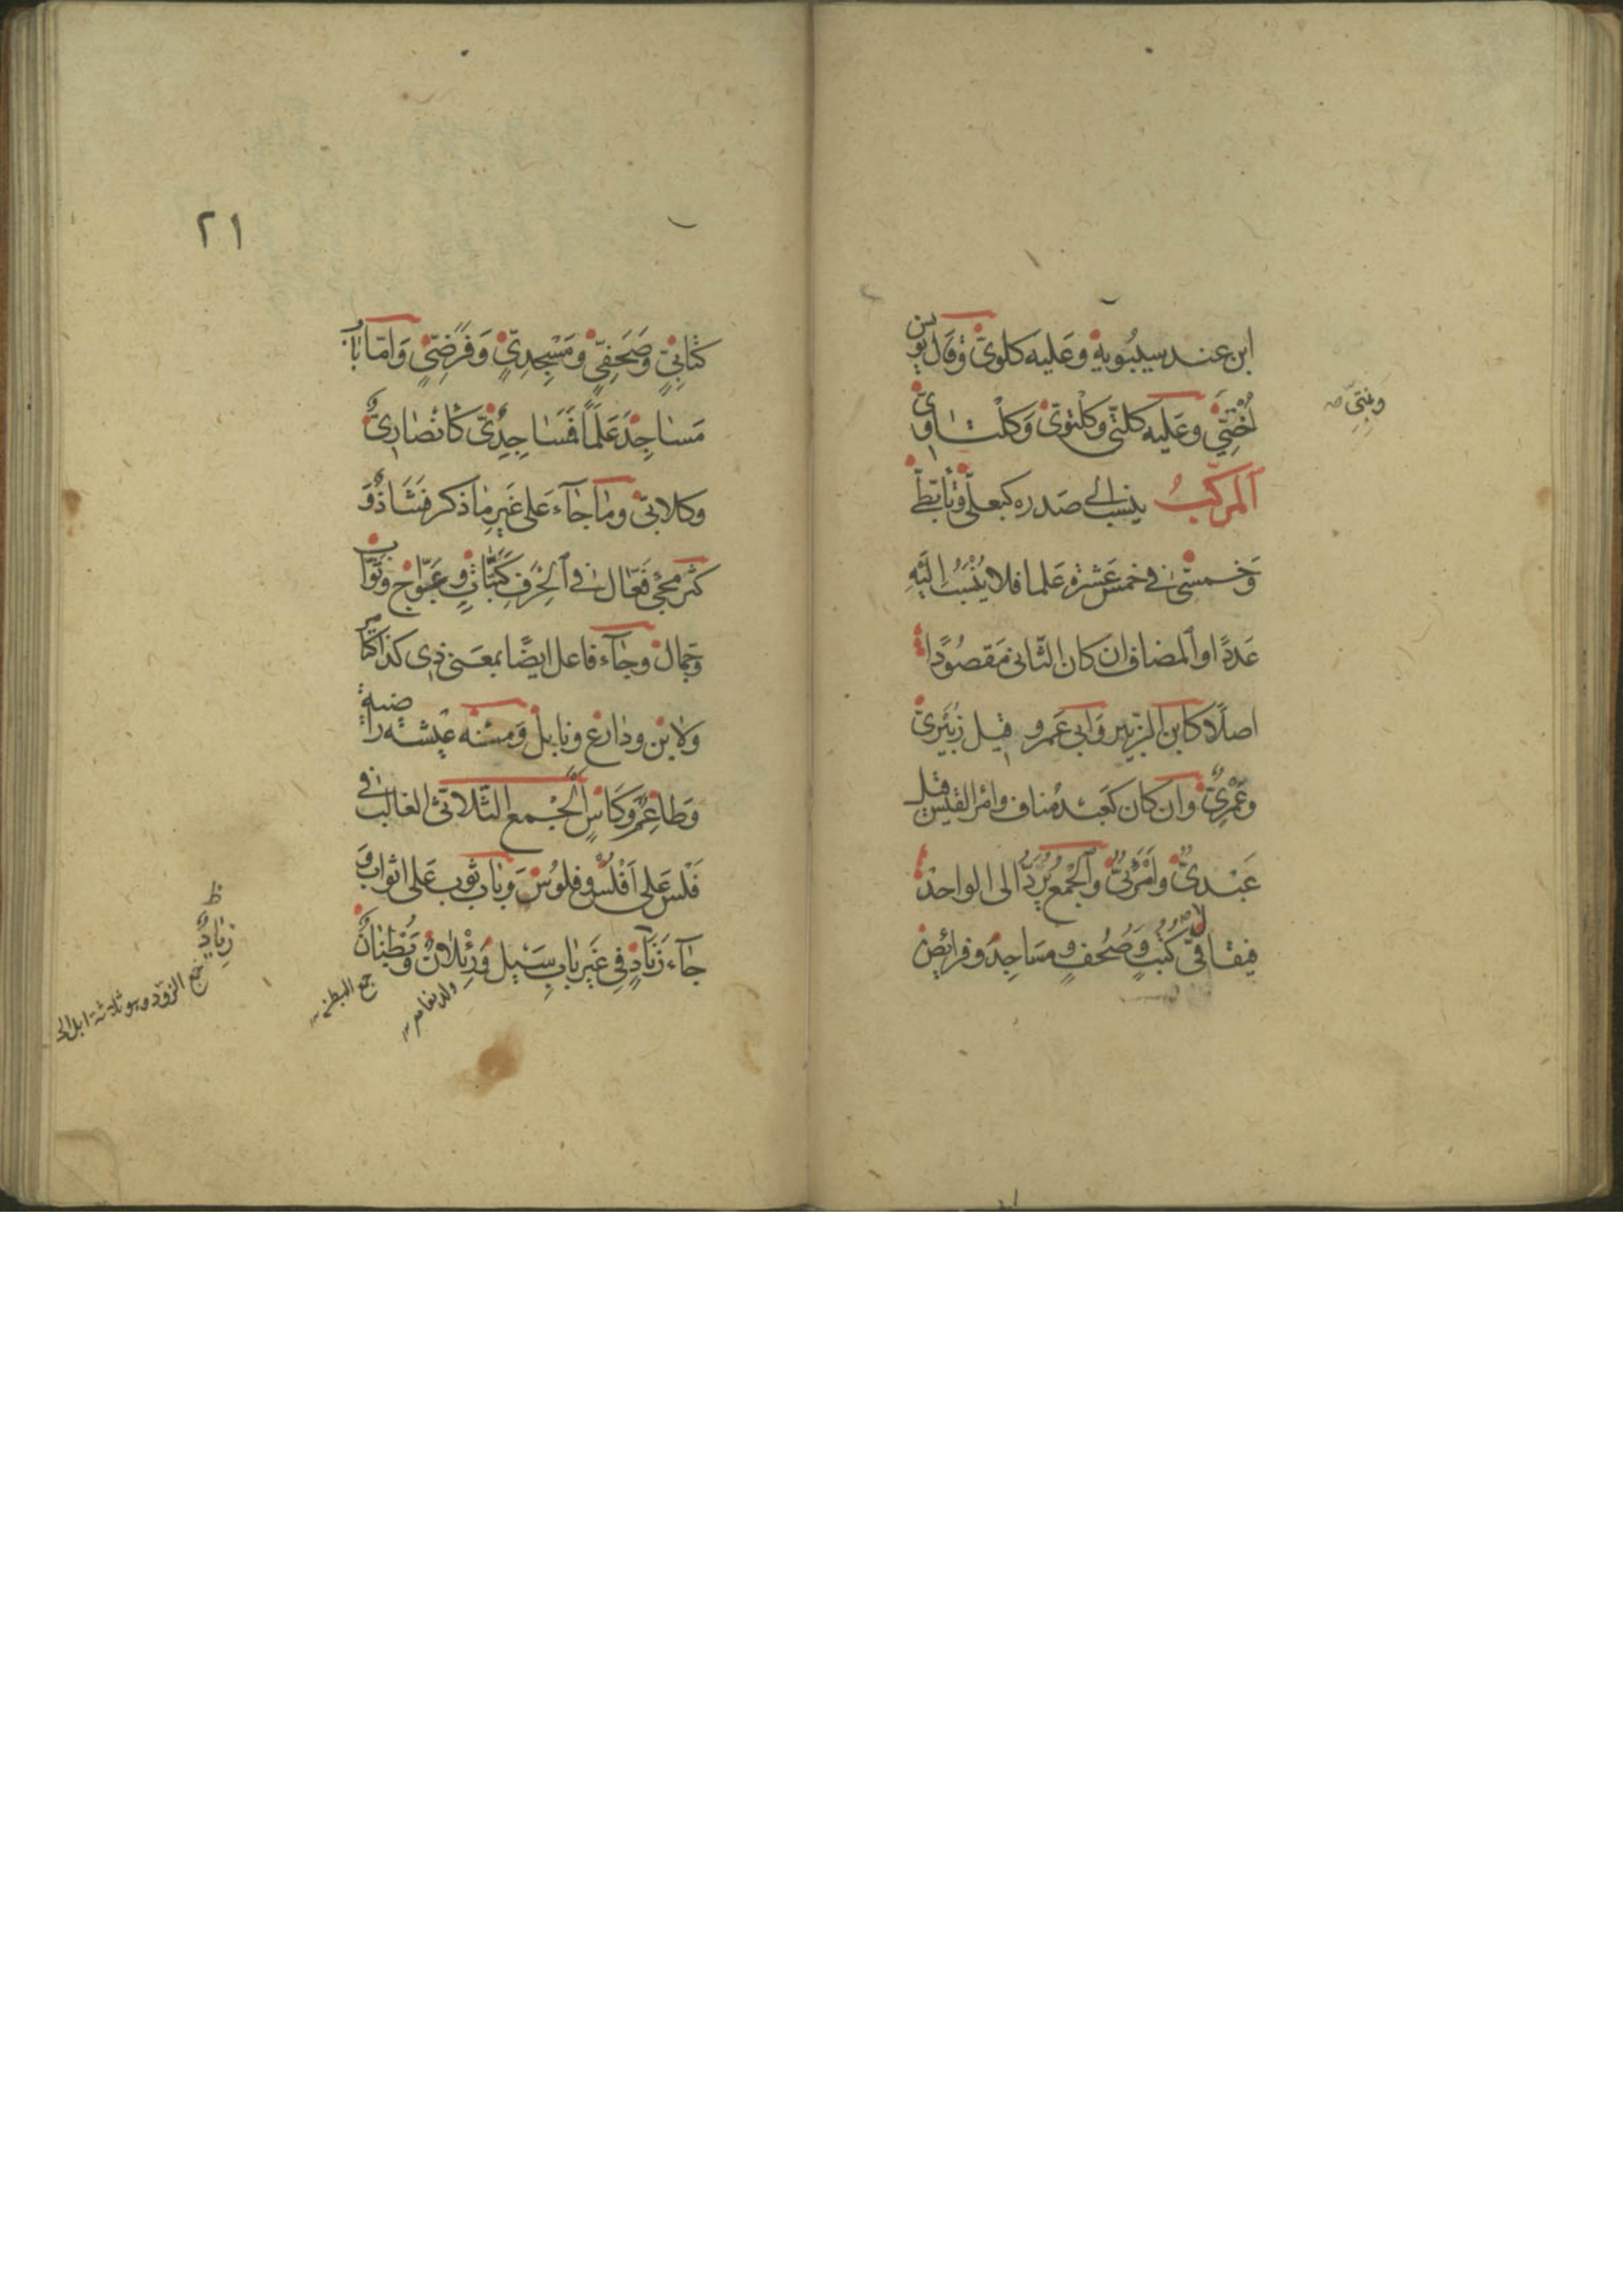 ابن عند سيبويه وعليه كلوىّ وقال يونس
اُخْتِيّ وعَليه كلتىّ وكلْتوىّ وَكلْتاوىّ
وبِنتِىّ صح
اَلمركّبُ ينسب الى صَدره كبعلىّ وتأبّطىّ
وَخمسىّ فى خمسَ عَشرة عَلما فلا يُنْسَبُ اليَه
عَددًا والمضاف ان كان الثّانى مَقصُودًا
اصلًا كابن الزّبير وَابى عَمرو قيل زُبَيْرىّ
وعَمْرِىٌّ وان كان كعَبْد مُناف وامرء القيس قيل
عَبْدىٌّ وامَرْئىٌّ والجْمعُ يُرَدُّ الى الواحد
فيقال فى كُتُبٍ وَصُحُفٍ ومسَاجدَ وفرائِض
٢١
كتابِىٍّ وصَحَفِىٍّ ومَسْجِدِىٍّ وَفَرَضِىٍّ وَامّا باب
مَساجِدَ عَلَمًا فَمَسَاجِدِىٌّ كاَنْصَارىٌّ
وكلابىّ وما جآءَ عَلى غَيرِ ما ذكر فَشَاذٌّ وَ
كثر مجْى فَعّال فى اَلحِْرَف كَبَتّاتٍ وعَوّاجٍ وثَوّابٍ
وجمّال وجآء فاعل ايضًا بمعَنى ذى كذا كتامر
وَلابن ودارع ونابل وَمنه عيشة راضية
وَطاعِمٌ وكَاسٍ الجْمع الثّلاثىّ الغالب فى
فَلْس عَلى اَفْلُس وفلوُس وباب ثوب عَلى اثواب وَ
جآء زنَادٌ فى غَير باب سَيْل وَرِئْلانٌ وَبُطْنانٌ
ظ
زِنادٌ
ولد نعام
جمع البطن